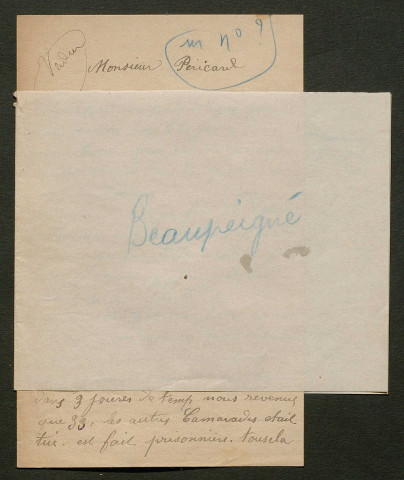 un nº 9
Monsieur Péricard
Beaupeigné
dans 9 joures de temp nous revenus
que 33, les autres Camarades etait
tué. est fait prisonnière. tousela